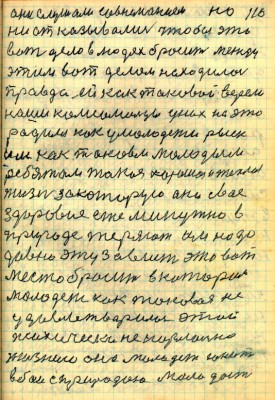 они слушали совниманием но 116
ни отказывали чтобы эть
вот дело в людях бросит между
этим вот делом находилоси
правда ей как таковой верем
наши комсомольцу у них на это
как у молодежи риск
им как таковым молодым
ребятам такая хорошая и тепла
жизн закоторую они свае
здоровие сте минутно в
природе терягат им надо
давно эту завлит это вот
место бросит в которая
молодеж как токовая не
удовлетварили этой
психически ненормално
жизнаго она молодеж
в бои сприродаю молодост